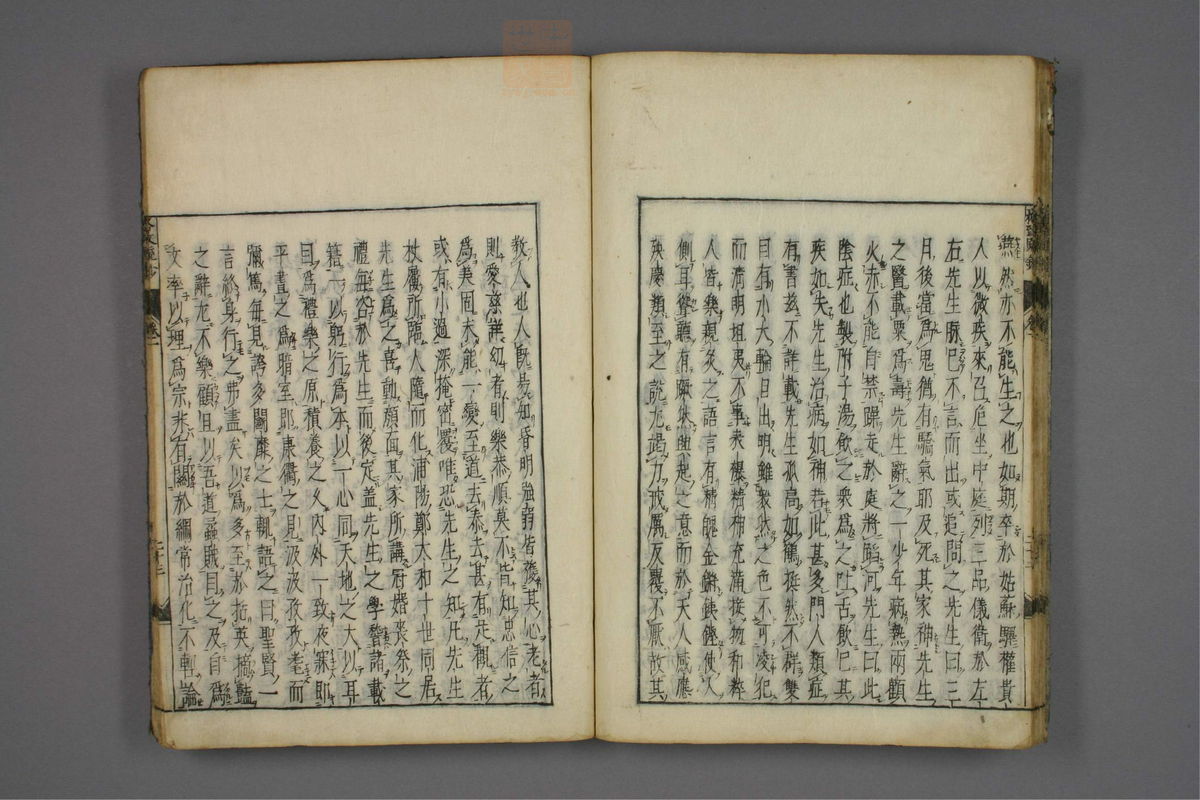 雖然亦不能生之也如期卒於姑蘇驕權貴
人以微疾來召危坐中庭列三品儀衛於左
右先生脈已不言而出或追問之先生曰三
月後當爲鬼猶有驕氣耶及死其家神先生
之醫載粟爲壽先生辭之一少年病熱兩顴
火赤不能自禁躁走於庭將蹈河先生曰此
陰症也製附子湯飲之衆爲之吐舌飲已其
疾如失先生治病如神若此甚多門人類症
有書茲不詳載先生孤高如鶴挺然不群雙
目有小大輪日出明雖毅然之色不可凌犯
而清明坦夷不事表襮精神充滿接物和粹
人皆樂親炙之語言有精魄金鏘鐵鏗使人
側耳聳聽有蹶然興起之意而於天人感應
殃慶類至之說尤竭力戒厲反覆不厭故其
教人也人既易知昏明强弱皆獲其心老者
則愛慈祥幼者則樂恭順莫不皆知忠信之
爲美固未能一變至道去泰去甚有足觀者
或有小過深掩密覆唯恐先生之知凡先生
杖屨所臨人隨而化浦陽鄭大和十世同居
先生爲之喜動顏面其家所講冠婚喪祭之
禮每咨於先生而後定蓋先生之學稽諸載
籍一以躬行爲本以一心同天地之大以耳
目爲禮樂之原積養之久內外一致夜寐即
平晝之爲暗室即康衢之見汲汲孜孜耄而
彌篤每見誇多鬭靡之士輒語之曰聖賢一
言終身行之弗盡矣以爲多至於拈英摘豔
之辭尤不樂顧且以吾道蟊賊目之及自爲
文率以理爲宗非有關於綱常治化不輕論